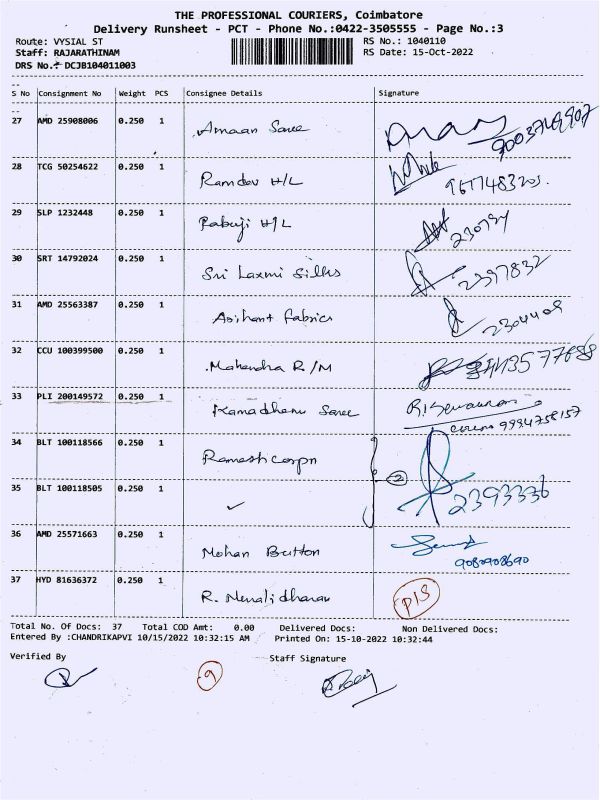 THE PROFESSIONAL COURIERS, Coimbatore
Delivery Runsheet - PCT - Phone No.:0422-3505555 - Page No.:3
Route: VYSIAL ST
RS No.: 1040110
Staff: RAJARATHINAM
RS Date: 15-Oct-2022
DRS No.: DCJB104011003
S No Consignment No Weight PCS Consignee Details Signature
27 AMD 25908006 0.250 1 Amaan Saree
28 TCG 50254622 0.250 1 Ramdev H/L
29 SLP 1232448 0.250 1 Pabuji H/L
30 SRT 14792024 0.250 1 Sri Laxmi Silks 2397832
31 AMD 25563387 0.250 1 Arihant fabrics 2304409
32 CCU 100399500 0.250 1 Mahendra R/M
33 PLI 200149572 0.250 1 Kamadhenu Saree
9994758157
34 BLT 100118566 0.250 1 Ramesh Corpn 2
35 BLT 100118505 0.250 1 2393336
36 AMD 25571663 0.250 1 Mohan Button
9080908690
37 HYD 81636372 0.250 1 R. Muralidharan P15
Total No. Of Docs: 37 Total COD Amt: 0.00 Delivered Docs: Non Delivered Docs:
Entered By :CHANDRIKAPVI 10/15/2022 10:32:15 AM Printed On: 15-10-2022 10:32:44
Verified By Staff Signature
9